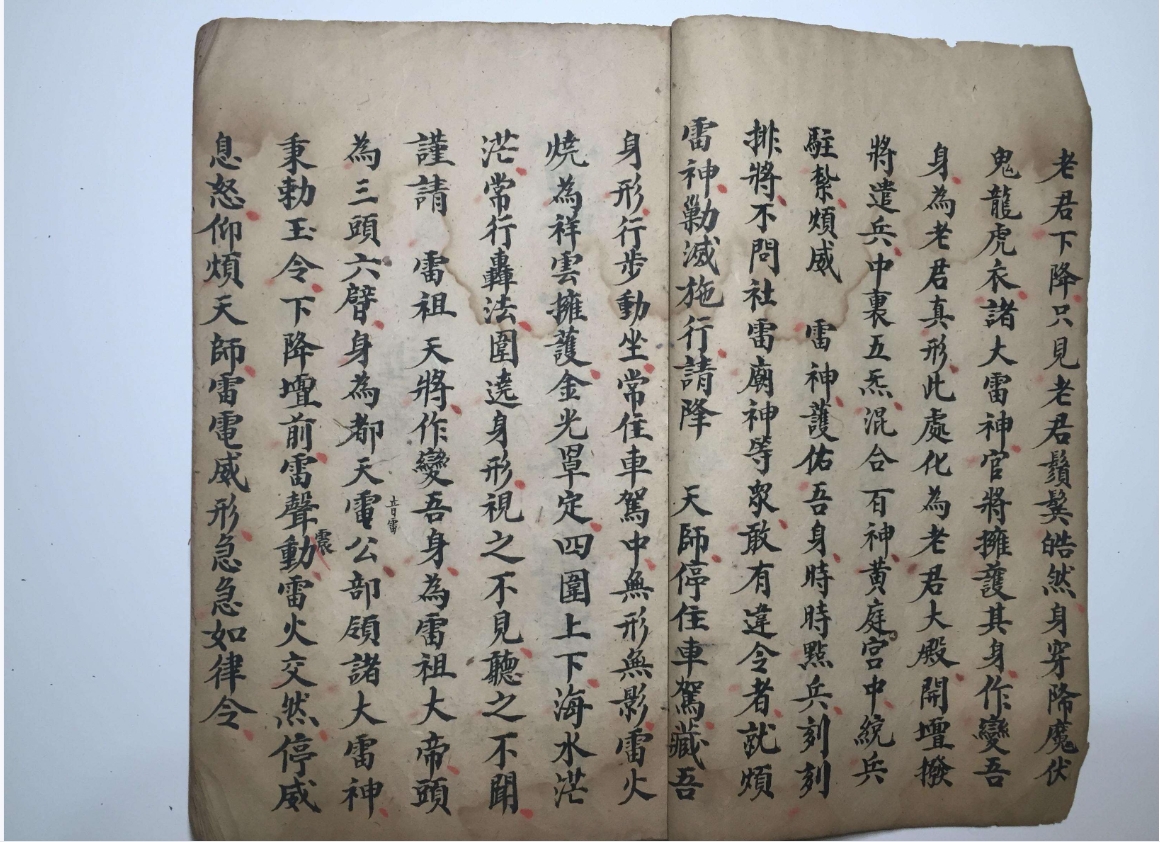 老君下降只見老君鬚髮皓然身穿降魔伏
鬼龍虎衣諸大雷神官將擁護其身作變吾
身為老君真形此處化為老君大殿開壇撥
將遣兵中裏五炁混合百神黃庭宮中統兵
駐紮煩威 雷神護佑吾身時時點兵刻刻
排將不問社雷廟神等眾敢有違令者就煩
雷神勦滅施行請降 天師停住車駕藏吾
身形行步動坐常住車駕中無形無影雷火
燒為祥雲擁護金光罩定四圍上下海水茫
茫常行轟法圍遶身形視之不見聽之不聞
謹請 雷祖天將作變吾身為雷祖大帝頭
為三頭六臂身為都天電公部領諸大雷神
音雷
秉勅玉令下降壇前雷聲動雷火交然停威
震
息怒仰煩天師雷電威形急急如律令